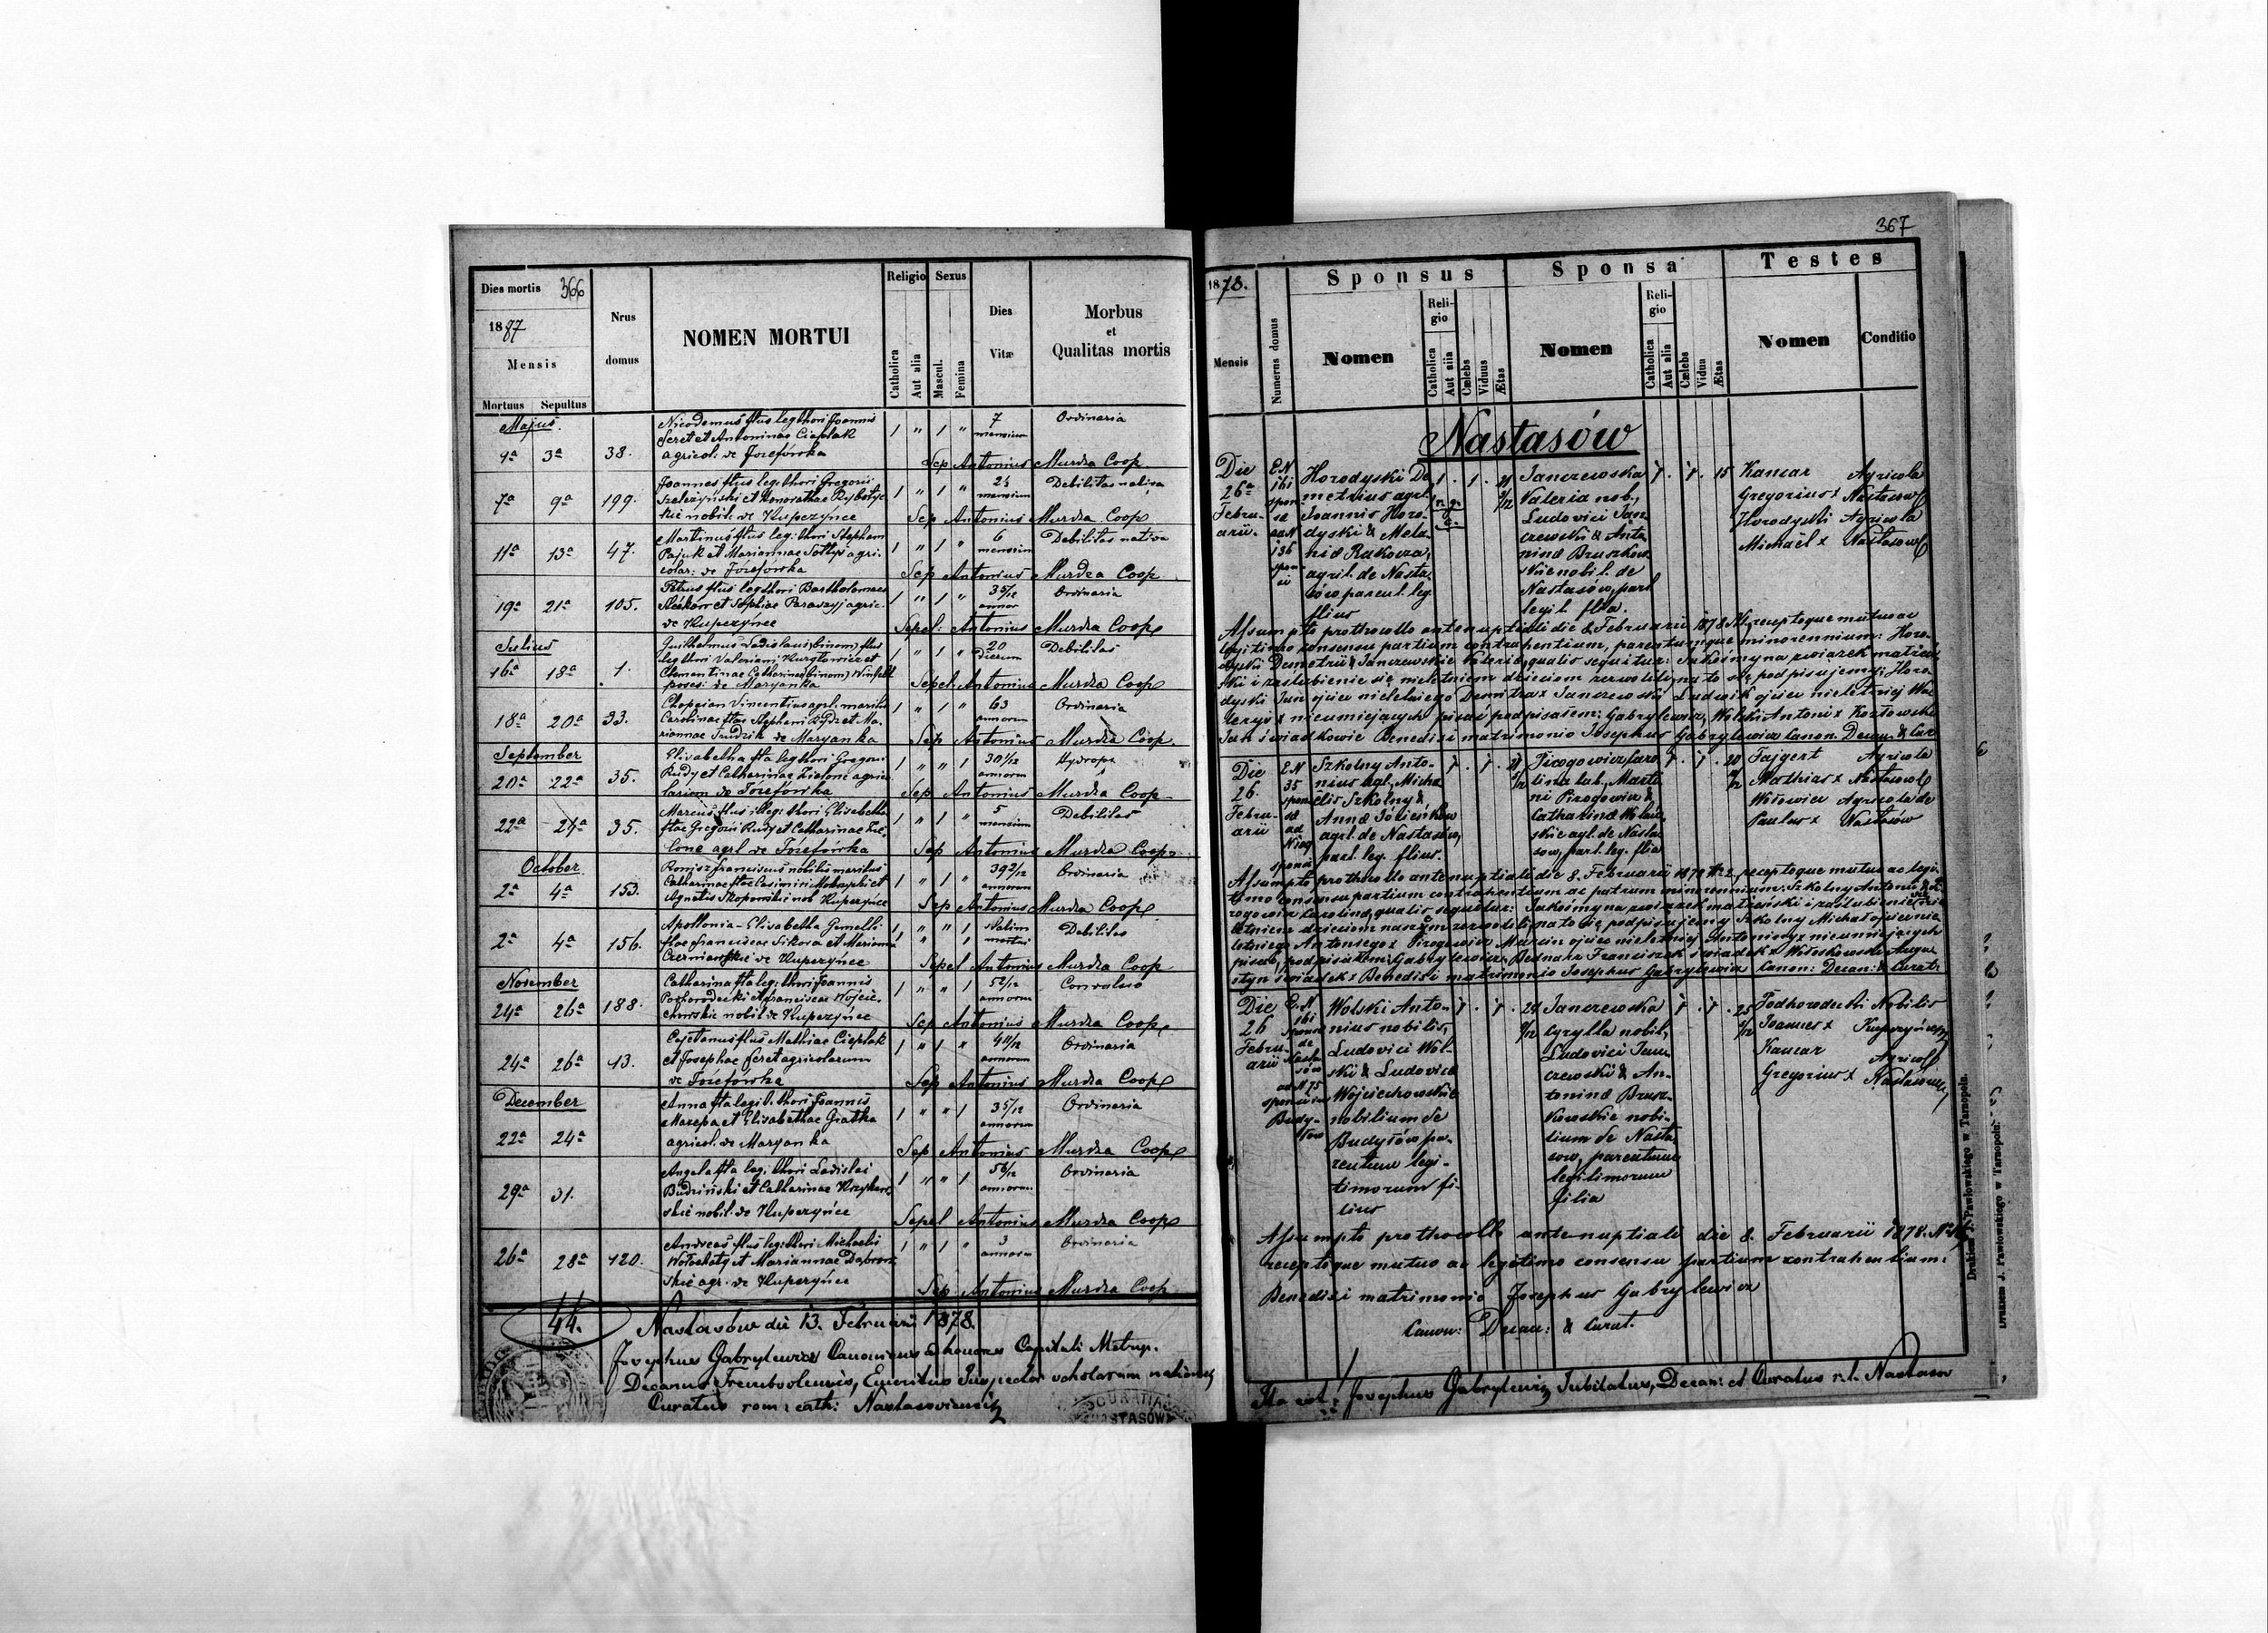 Dies mortis 366
1887
Mensis
Mortuus Sepultus
Nrus domus
NOMEN MORTUI
Religio
Catholica
Aut alia
Sexus
Mascul.
Femina
Dies Vitæ
Morbus et Qualitas mortis
Majus.
9a 3a 38.
Nicodemus flus leg thori Joannis
Seret et Antoninae Cieplak
agricol: de Józefówka
1 " 1 " 7 mensium Ordinaria
Sep Antonius Murdza Coop
7a 9a 199.
Joannes flus leg: thori Gregorii
Szeleżyński et Honorathae Rybotyc
kie nobil: de Kupczyńce
1 " 1 " mensium Debilitas nativa
Sep Antonius Murdza Coop
11a 13a 47.
Martinus flus leg: thori Stephani
Pajuk et Mariannae Sołtys agri-
colar: de Józefówka
1 " 1 " 6 mensium Debilitas nativa
Sep Antonius Murdza Coop
19a 21a 105.
Petrus flus leg thori Bartholomaei
et Sophiae agric.
de Kupczyńce
1 " 1 " 3 5/12 annor Ordinaria
Sepel: Antonius Murdza Coop
Julius
16a 18a 1.
Guilhelmus Ladislaus (binom) flus
leg thori Valeriani et
Clementinae Catharinae (binom)
poses: de Maryanka
1 " 1 " 20 dierum Debilitas
Sepel Antonius Murdza Coop
18a 20a 33.
Chopcian Vincentius agrl. maritus
Carolinae flae Stephani et Ma-
riannae Dudzik de Maryanka
1 " 1 " 63 annorum Ordinaria
Sep Antonius Murdza Coop
September
20a 22a 35.
Elisabetha fla leg thori Gregorii
Rudy et Catharinae Zielone agrico
larum de Józefówka
1 " " 1 30 1/12 annorum Hydrops
Sep Antonius Murdza Coop
22a 24a 35.
Marcus flus illeg: thori Elisabetha
flae Gregorii Rudy et Catharinae Zie-
lone agrl de Józefówka
1 " 1 " 5 mensium Debilitas
Sep Antonius Murdza Coop
October
2a 4a 153.
Franciscus nobilis maritus
Catharinae flae Casimiri et
Agnetis nob Kupczyńce
1 " 1 " 39 2/12 annorum Ordinaria
Sep Antonius Murdza Coop
2a 4a 156.
Apollonia - Elisabetha Gemelli
flae Franciscae Sikora et Marianna
de Kupczyńce
1 " " 1 Statim mortui Debilitas
Sepel Antonius Murdza Coop
November
24a 26a 188.
Catharina fla leg: thori Joannis
Podhorodecki et Franciscae Wojcie-
chowskie nobil de Kupczyńce
1 " " 1 5 2/12 annorum Convulsio
Sep Antonius Murdza Coop
24a 26a 13.
Cajetanus flus Mathiae Cieplak
et Josephae Seret agricolarum
de Józefówka
1 " 1 " 4 11/12 annorum Ordinaria
Sep Antonius Murdza Coop
December
22a 24a
Anna fla legit. thori Joannis
Mazepa et Elisabethae Gratka
agricol. de Maryanka
1 " " 1 3 5/12 annorum Ordinaria
Sep Antonius Murdza Coop
29a 31.
Angela fla leg: thori Ladislai
Budziński et Catharinae
skie nobil: de Kupczyńce
1 " " 1 5 6/12 annorum Ordinaria
Sepel Antonius Murdza Coop
26a 28a 120.
Andreas flus leg: thori Michaelis
Wołochaty et Mariannae Dąbrow
skie agr. de Kupczyńce
1 " 1 " 3 annorum Ordinaria
Sep Antonius Murdza Coop
44.
Nastasów die 13. Februarii 1878.
Josephus Gabrylewicz Canonicus ad honores Capituli Metrop.
Decanus Trembovlensis, Emeritus Inspector scholarum nationa
Curatus rom: cath: Nastasoviensis
CURATIA
NASTASÓW
367
1878.
Mensis
Numerus domus
Sponsus
Nomen
Religio
Catholica
Aut alia
Cælebs
Viduus
Ætas
Sponsa
Nomen
Religio
Catholica
Aut alia
Cælebs
Vidua
Ætas
Testes
Nomen
Conditio
Nastasów
Die 26a Februarii.
E N 161 sponsæ ad N 136 sponsi
Horodyski De
metrius agrl.
Joannis Horo-
dyski & Mela-
niæ Rakocza,
agril. de Nasta-
sów parent. leg.
filius
1 r. g. c. 1 21 2/12
Janczewska
Valeria nob.,
Ludovici Jan-
czewski & Anto-
ninæ Bruszkow-
skie nobil. de
Nastasów, part
legit. flia.
1 . 1 . 15
Kancar Agricola
Gregorius x Nastasow
Horodyski Agricola
Michaël x Nastasow
Assumpto prothocollo antenuptiali die 8 Februarii 1878 N1, receptoque mutuo ac
legitimo consensu partium contrahentium, parentumque minorennium: Horo-
dyski Demetrii & Janczewskie Valeriæ, qualis sequitur: Jakośmy na związek małżeń
ski i zaślubienie się nieletniem dzieciom zezwolili, na to się podpisujemy: Horo-
dyski Jan ojciec nieletniego Dmitra x Janczewski Ludwik ojciec nieletniej Wa
leryi x nieumiejących pisać podpisałem: Gabrylewicz, Wolski Antoni x Kozłowski
Jan świadkowie Benedixi matrimonio Josephus Gabrylewicz Canon. Decan. & Cur
Die 26. Februarii
E N 35 sponsæ ad N sponsi
Szkolny Anto-
nius agl, Micha
elis Szkolny &
Annæ
agrl. de Nastasów,
part. leg. flius.
1 . 1 . 21 5/12
Pirogowicz Caro
lina lab., Marti
ni Pirogowicz &
Catharinæ
skie agl. de Nasta
sow, part. leg. flia
1 . 1 . 20
Fajgert Agricola
Mathias x Nastasow
Wosowicz Agricola de
Paulus x Nastasów
Assumpto prothocollo antenuptiali die 8. Februarii 1878 N 2. receptoque mutuo ac legi
timo consensu partium contrahentium ac patrum minorennium: Szkolny Antonii & Pi
rogowicz Carolinæ, qualis sequitur: Jakośmy na związek małżeński i zaślubienie się nie
letniem dzieciom naszym zezwolili, na to się podpisujemy Szkolny Michał ojciec nie
letniego Antoniego x Pirogowicz Marcin ojciec nieletniej Antoniny x nieumiejących
pisać, podpisałem: Gabrylewicz, Bednarz Franciszek świadek x Augu
styn świadek x Benedixi matrimonio Josephus Gabrylewicz Canon: Decan: & Curat:
Die 26 Februarii
E. N 161 sponsæ de Nastasów ad N 75 sponsi in Budyłow
Wolski Anto-
nius nobilis,
Ludovici Wol-
ski & Ludovicæ
Wojciechowskie
nobilium de
Budyłów pa-
rentum legi-
timorum fi-
lius
1 . 1 . 24 9/12
Janczewska
Cyrylla nobil,
Ludovici Jan-
czewski & An-
toninæ Brusz-
kowskie nobi-
lium de Nasta-
sow, parentum
legitimorum
filia
1 . 1 . 25 2/12
Podhorodecki Nobilis
Joannes x Kupczyńce
Kancar Agricol
Gregorius x Nastasow
Assumpto prothocollo antenuptiali die 8. Februarii 1878. N
receptoque mutuo ac legitimo consensu partium contrahentium:
Benedixi matrimonio Josephus Gabrylewicz
Canon: Decan: & Curat.
Ita est: Josephus Gabrylewicz Jubilatus, Decan: et Curatus r. l. Nastasow
Drukiem J. Pawłowskiego w Tarnopolu.
Drukiem J. Pawłowskiego w Tarnopolu.